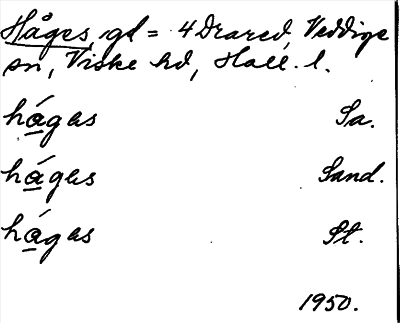 Håges, gd = 4 Drared, Veddige
sn, Viske hd, Hall. l.
hágas Sa.
hágas Sand.
hágas St.
1950.